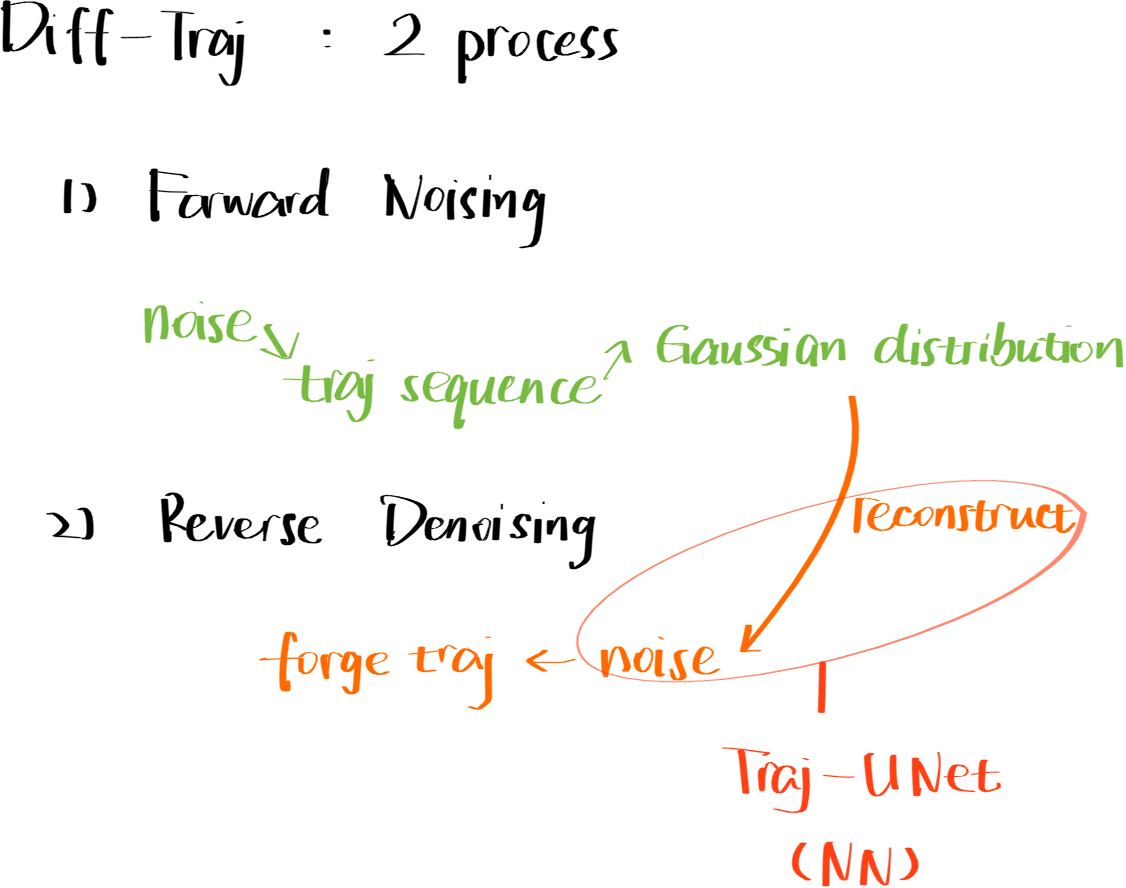 Diff-Traj : 2 process
1) Forward Noising
noise
traj sequence
Gaussian distribution
2) Reverse Denoising
reconstruct
forge traj ← noise
Traj-UNet
(NN)